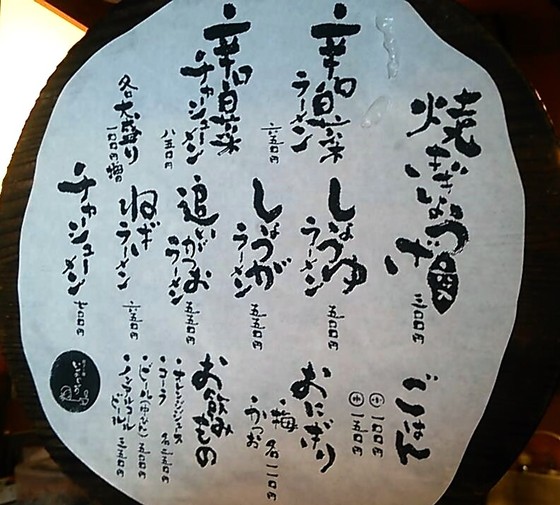 焼ぎょうざ 三〇〇円
ごはん
小 一〇〇円
大 一五〇円
辛白菜ラーメン 六五〇円
しょうゆラーメン 五五〇円
おにぎり
梅
かつお
各一一〇円
辛白菜チャーシューメン 八五〇円
しょうがラーメン 五五〇円
追いがつおラーメン 五五〇円
お飲みもの
オレンジジュース
コーラ
各二五〇円
ビール(中びん) 五五〇円
ノンアルコールビール 三五〇円
各大盛り 一〇〇円増
ねぎラーメン 六五〇円
チャーシューメン 七〇〇円